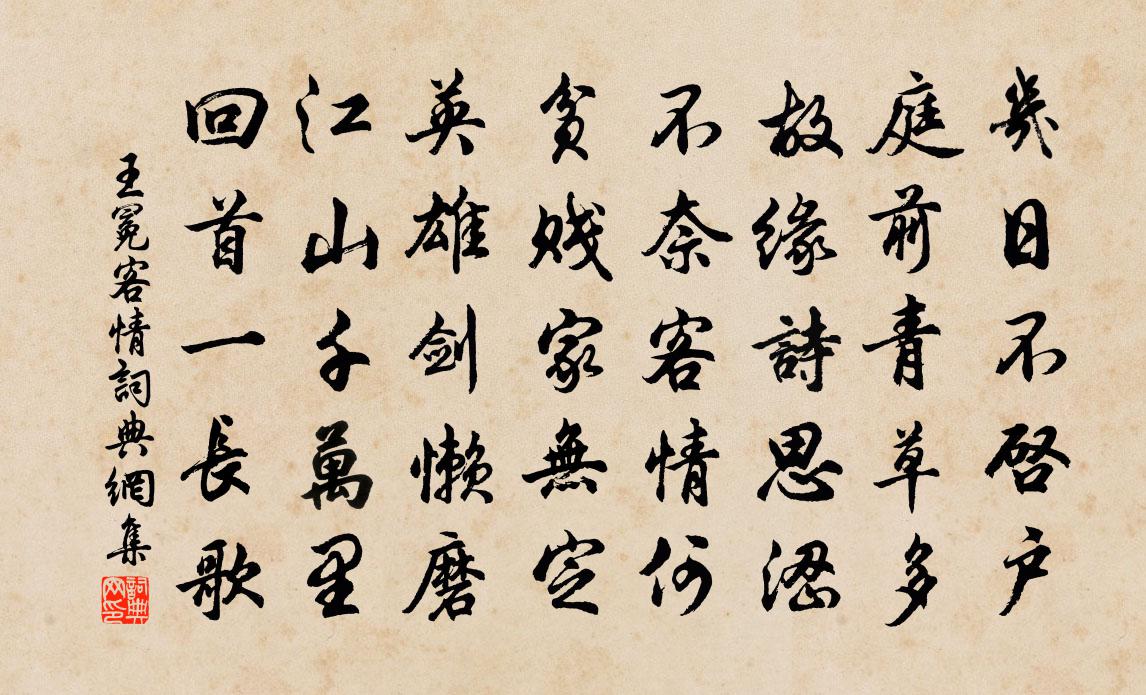 幾日不啓户
庭前青草多
故緣詩思澀
不奈客情何
貧賤家無定
英雄劍懶磨
江山千萬里
回首一長歌
王冕客情詞典網集
詞典網印